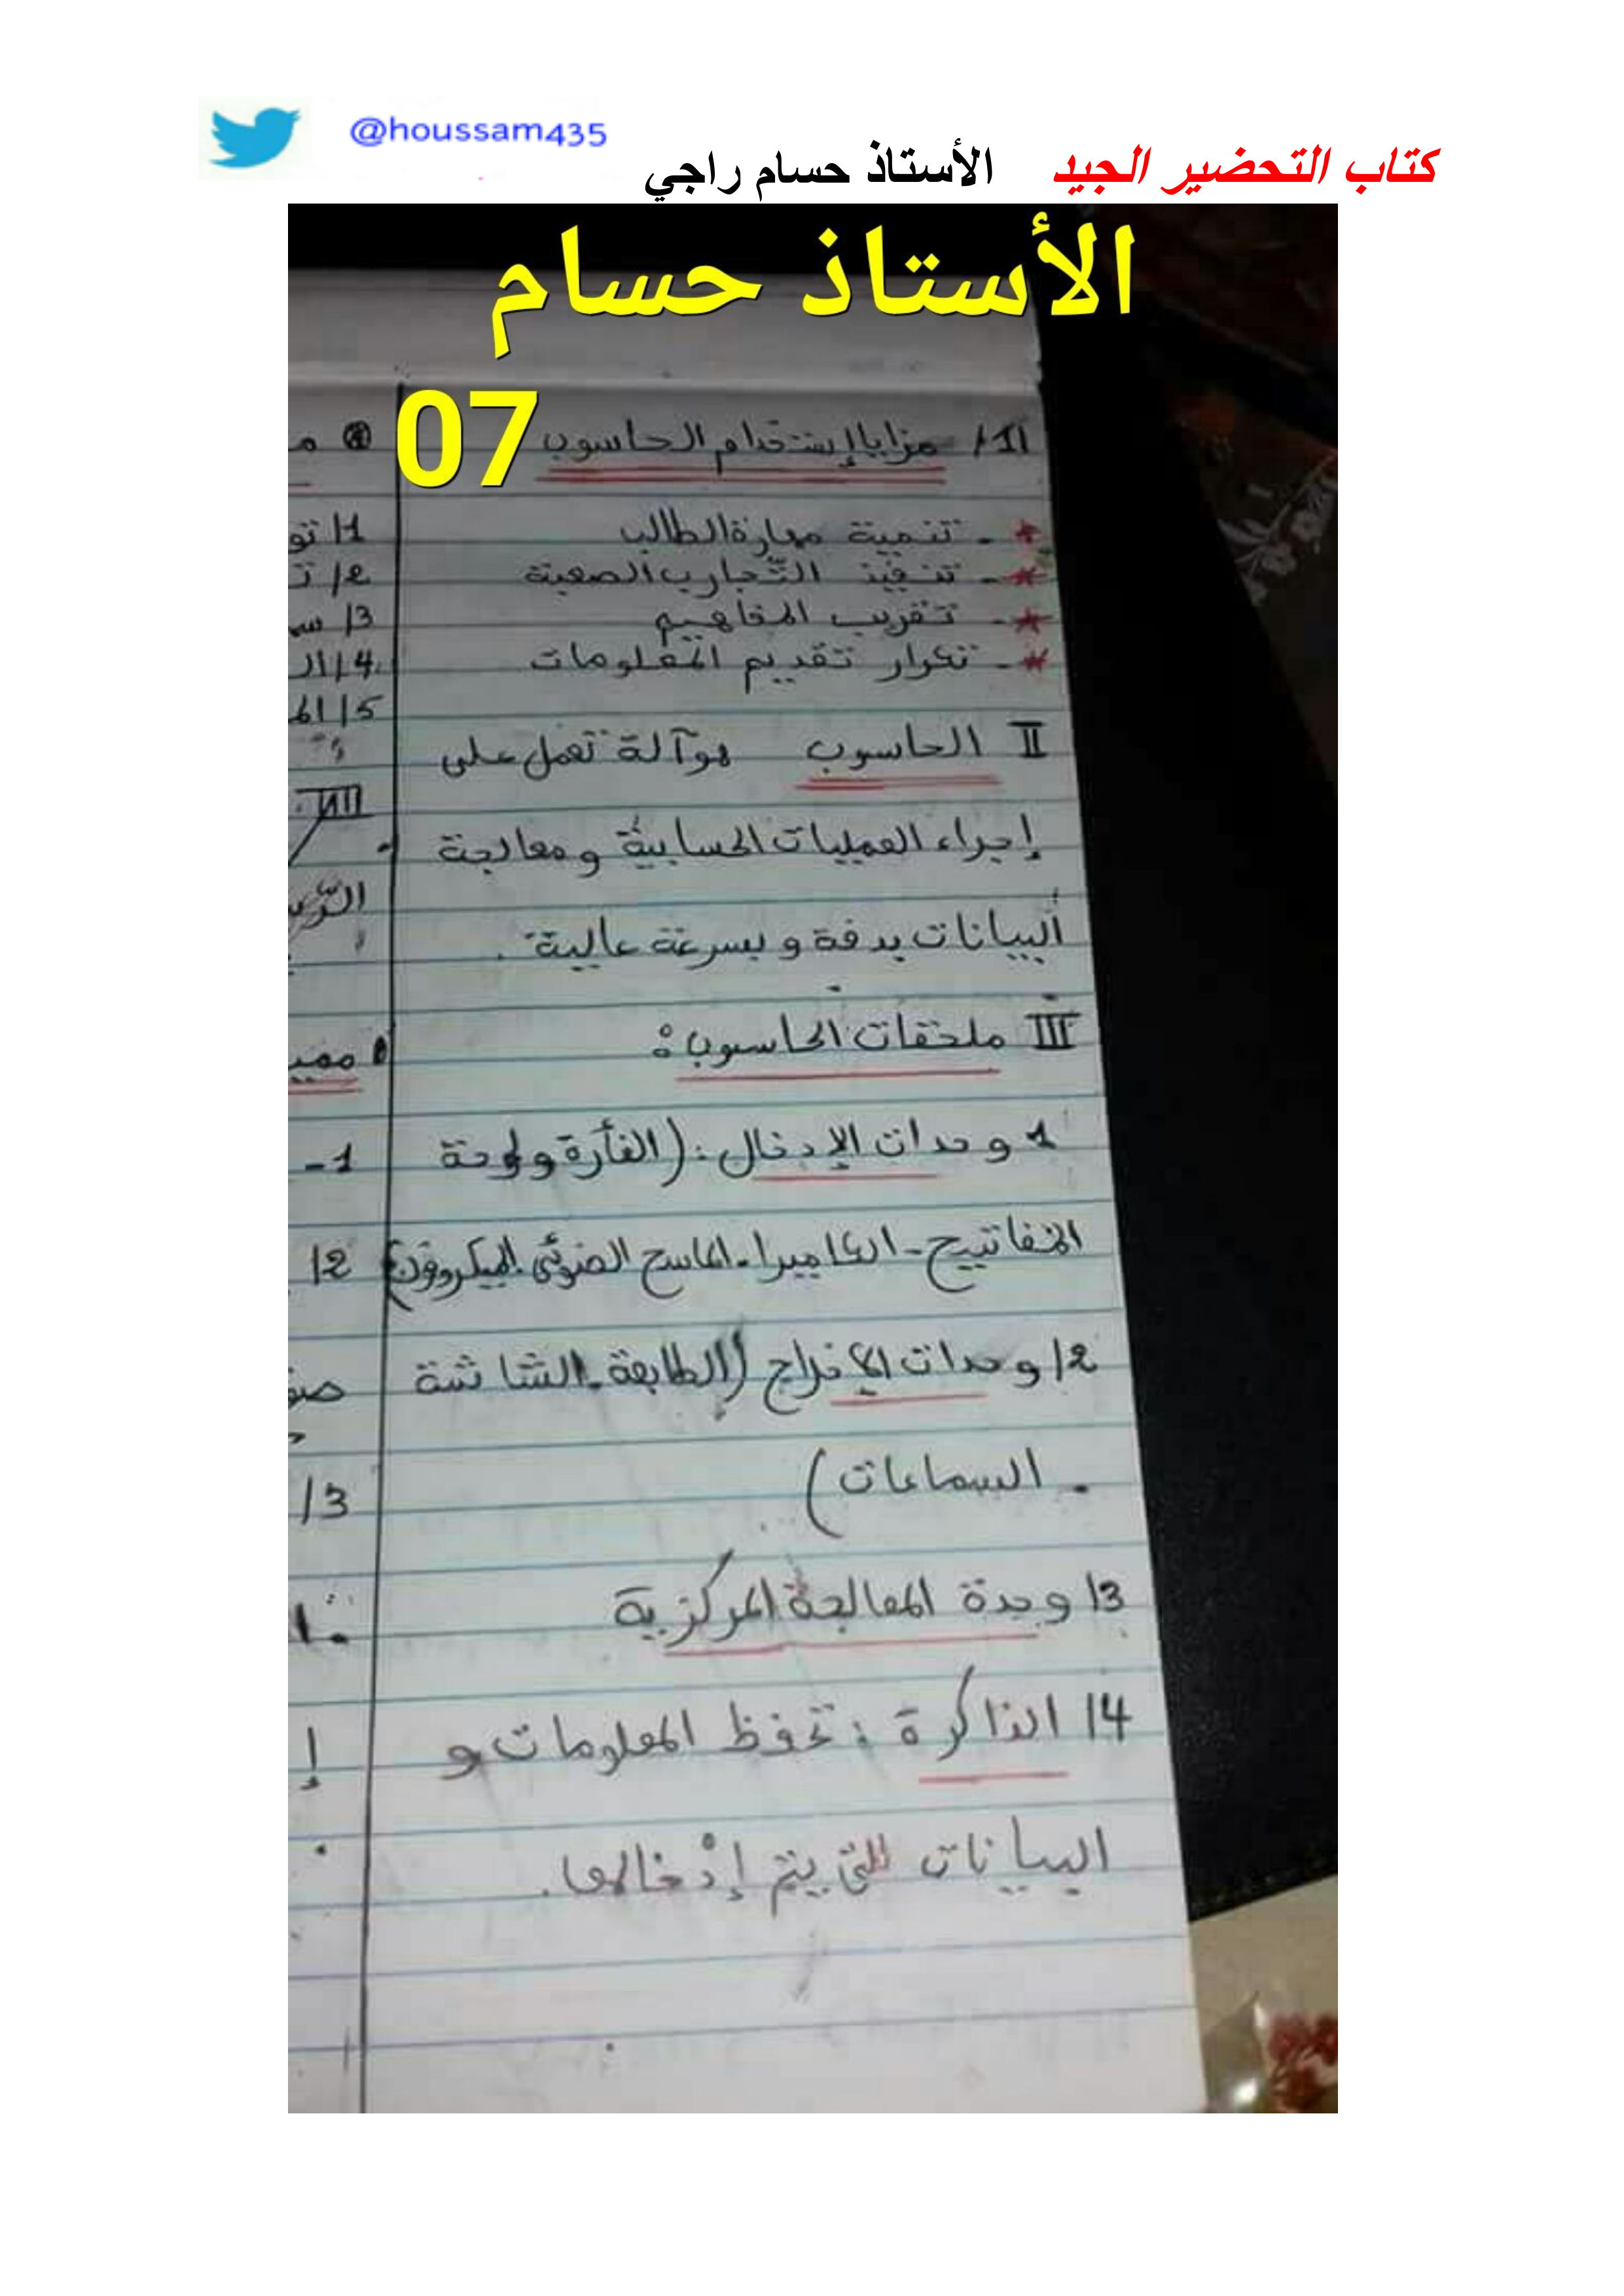 @houssam435
كتاب التحضير الجيد   الأستاذ حسام راجي
الأستاذ حسام
07
1I/ مزايا إستخدام الحاسوب
* - تنمية مهارة الطالب
* - تنفيذ التّجارب الصعبة
* - تقريب المفاهيم
* - تكرار تقديم المعلومات
II الحاسوب هو آلة تعمل على
إجراء العمليات الحسابية و معالجة
البيانات بدقة و بسرعة عالية .
III ملحقات الحاسوب :
1 وحدات الإدخال : (الفأرة و لوحة
المفاتيح - الكاميرا - الماسح الضوئي . الميكروفون)
2/ وحدات الإخراج (الطابعة - الشاشة
- السماعات)
3/ وحدة المعالجة المركزية
4/ الذاكرة : تحفظ المعلومات و
البيانات التي يتم إدْخالها .
1/ تو
2/ ت
3/ س
4/ ال
5/ الم
VIII
1-
2/
3/